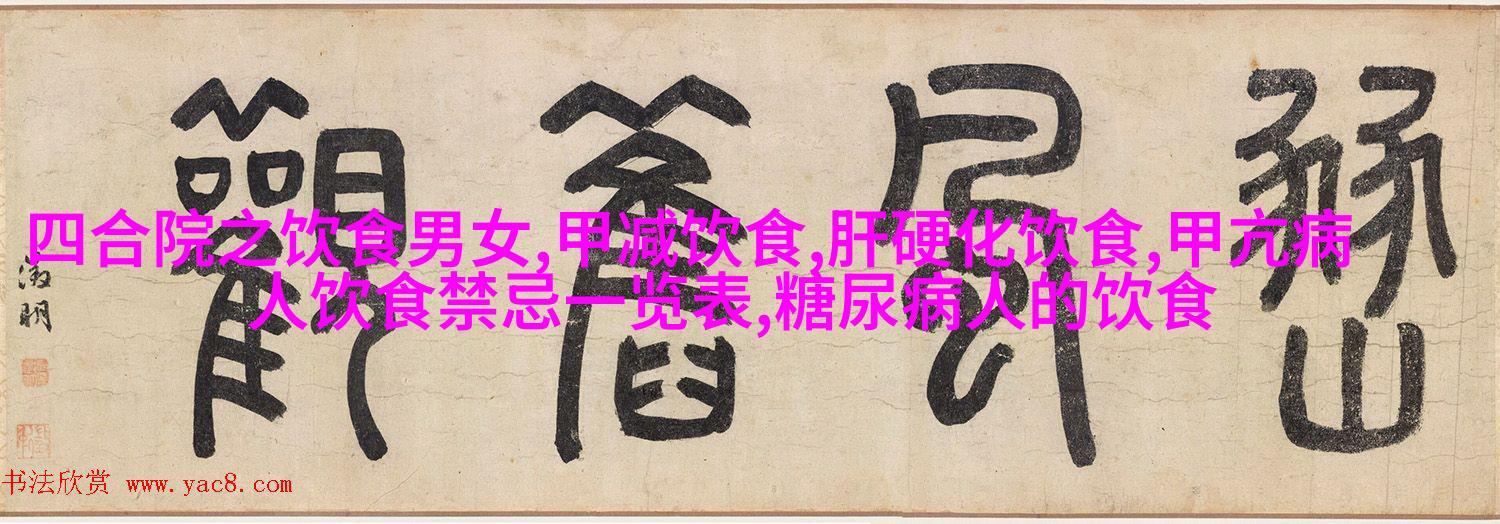 豳風舊觀
徵明
四合院之饮食男女,甲减饮食,肝硬化饮食,甲亢病
人饮食禁忌一览表,糖尿病人的饮食
书法欣赏 www.yac8.com